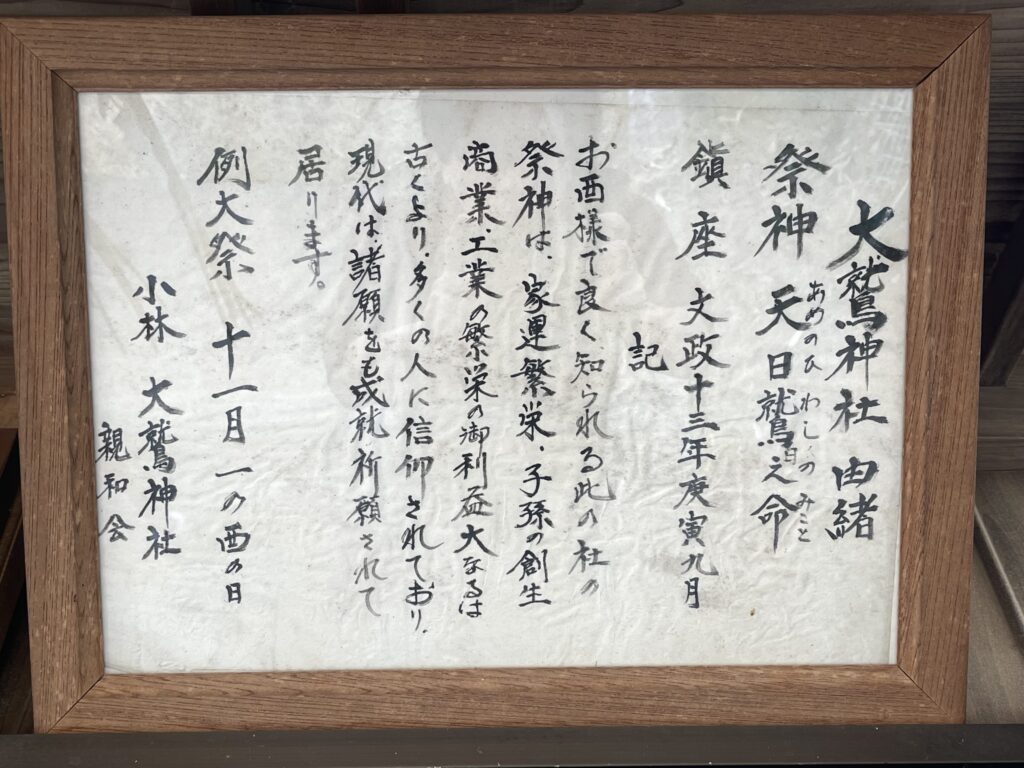 大鷲神社 由緒
祭神 天日鷲之命
あめのひ わしのみこと
鎮座 文政十三年庚寅九月
記
お酉様で良く知られる此の社の
祭神は、家運繁栄、子孫の創生
商業、工業の繁栄の御利益大なるは
古くより、多くの人に信仰されており、
現代は諸願をも成就祈願されて
居ります。
例大祭 十一月一の酉の日
小林 大鷲神社
親和会